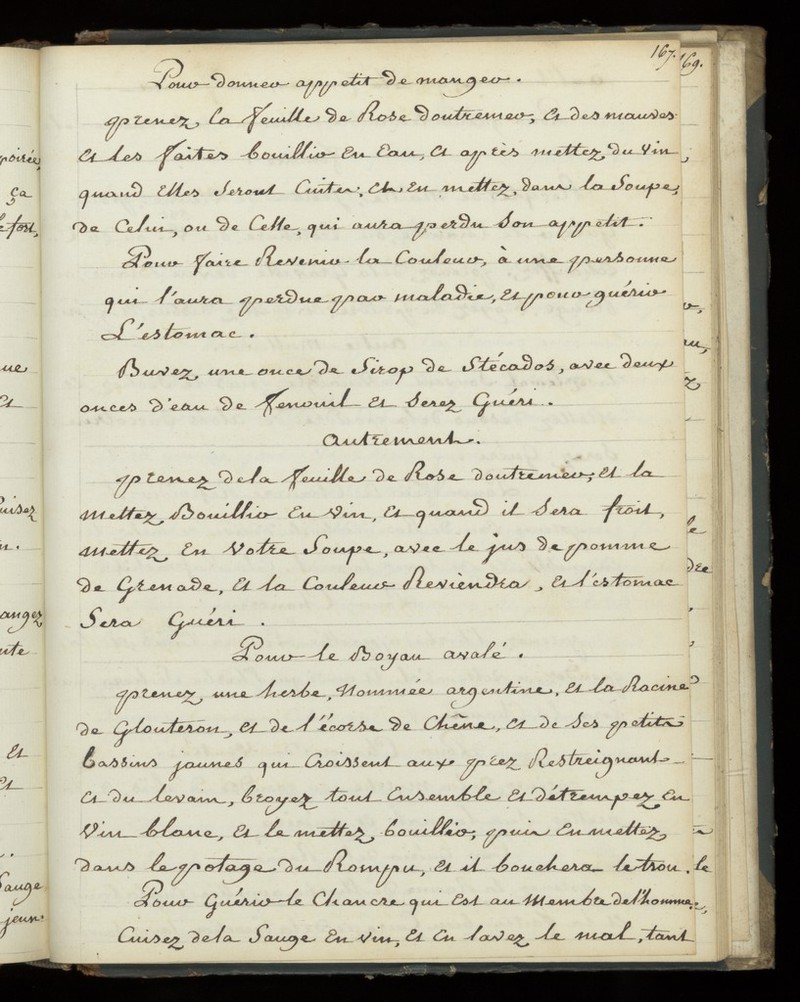 167.
Pour donner appetit de manger.
prenez, la feuille de Rose doutremer, et des mauves
Et les faites bouillir En Eau, et après mettez, du vin
quand Elles Seront Cuites, Et En mettez, dans la Soupe,
de Celui, ou de Celle, qui aura perdu Son appetit.
Pour faire Revenir la Couleur, à une personne
qui l'aura perdue par maladie, et pour guérir
L'estomac.
Buvez, une once de Sirop de Stécados, avec deux
onces d'eau de fenouil Et Serez Guéri.
autrement.
prenez de la feuille de Rose doutremer, Et la
mettez, Bouillir En Vin, Et quand il Sera froit,
mettez En Votre Soupe, avec le jus de pomme
de Grenade, Et la Couleur Reviendra, Et l'estomac
Sera Guéri.
Pour le Boyau avalé.
prenez, une herbe, Nommée argentine, Et la Racine
de Glouteron, Et de l'écorse de Chêne, Et de Ses petits
bassins jaunes qui Croissent aux prez Restreignant
Et du levain, broyez tout Ensemble Et détrempez, En
Vin blanc, Et le mettez, bouillir, puis En mettez,
dans le potage du Rompu, Et il bouchera le trou.
Pour Guérir le Chancre qui Est au Membre de l'homme.
Cuisez de la Sauge En vin, Et En lavez, le mal, tant
169.